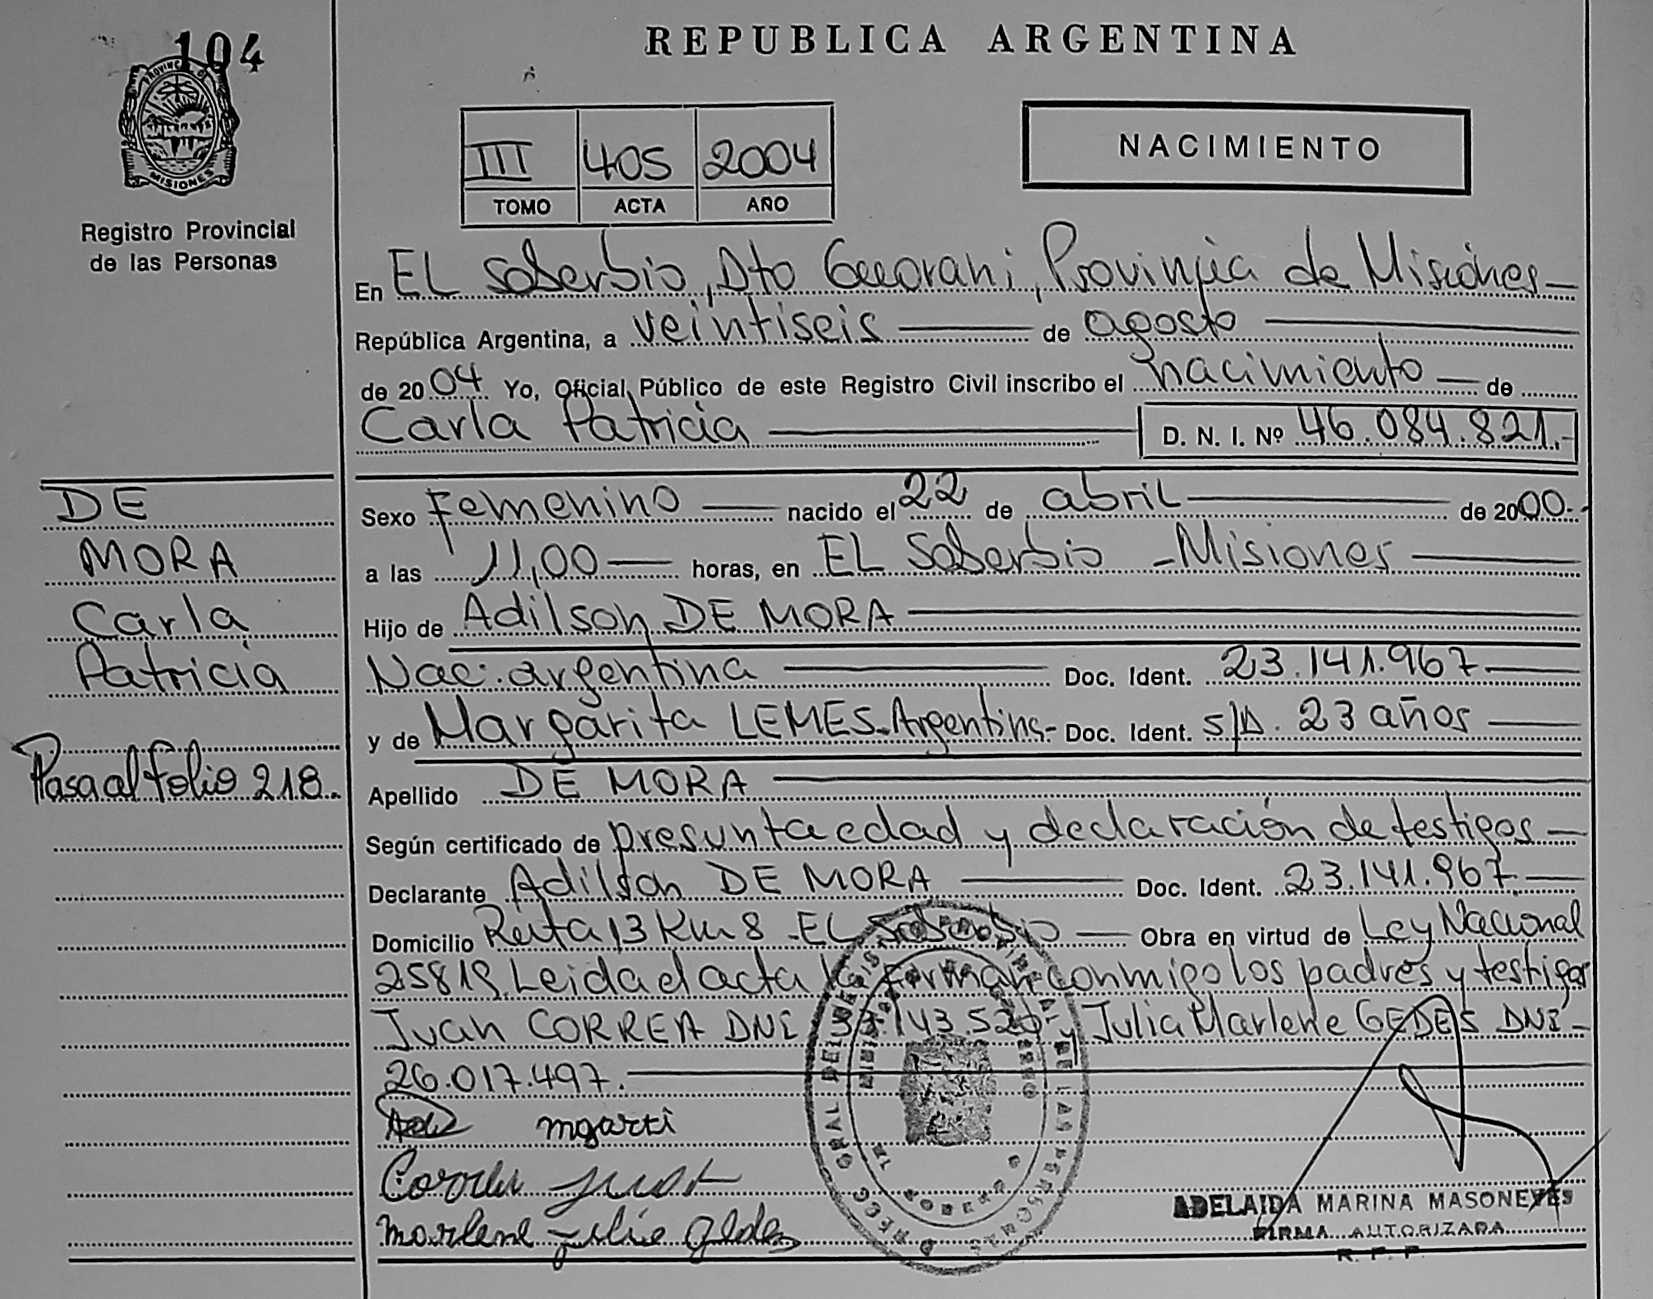 104
PROVINCIA DE
MISIONES
Registro Provincial
de las Personas
REPUBLICA ARGENTINA
III 405 2004
TOMO ACTA AÑO
NACIMIENTO
En EL Soberbio, Dto Guarani, Provincia de Misiones
República Argentina, a veintiseis de agosto
de 2004 Yo, Oficial Público de este Registro Civil inscribo el nacimiento de
Carla Patricia D. N. I. Nº 46.084.821.-
DE
MORA
Carla
Patricia
Pasa al folio 218.
Sexo Femenino nacido el 22 de abril de 2000.-
a las 11,00 horas, en EL Soberbio - Misiones
Hijo de Adilson DE MORA
Nac: argentina Doc. Ident. 23.141.967
y de Margarita LEMES-Argentina- Doc. Ident. S/D. 23 años
Apellido DE MORA
Según certificado de presunta edad y declaración de testigos
Declarante Adilson DE MORA Doc. Ident. 23.141.967.
Domicilio Ruta 13 Km 8 - EL Soberbio Obra en virtud de Ley Nacional
25819. Leida el acta la firman conmigo los padres y testigos
Juan CORREA DNI .143.520- y Julia Marlene GEDES DNI-
26.017.497.
mgarti
Correa Juan
marlene julia
ADELAIDA MARINA MASONEYES
FIRMA AUTORIZADA
R. P. P.